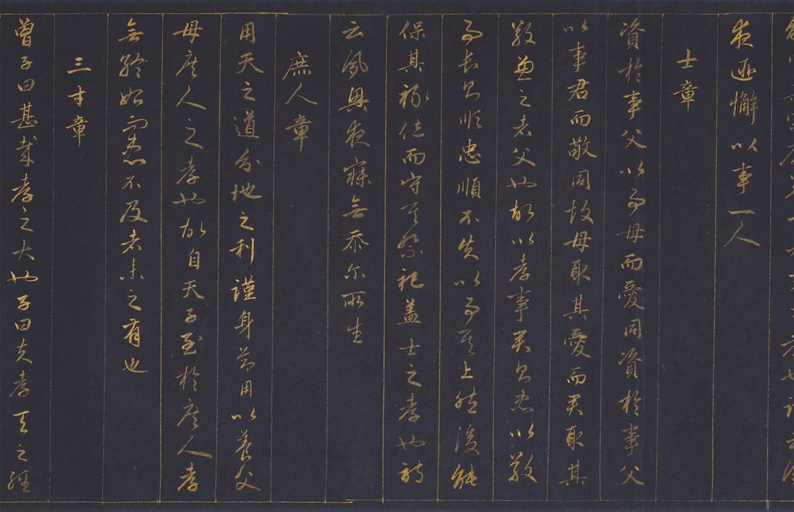 夜匪懈以事一人
士章
資於事父以事母而愛同資於事父
以事君而敬同故母取其愛而君取其
敬兼之者父也故以孝事君則忠以敬
事長則順忠順不失以事其上然後能
保其祿位而守其祭祀蓋士之孝也詩
云夙興夜寐無忝尔所生
庶人章
用天之道分地之利謹身節用以養父
母庶人之孝也故自天子至於庶人孝
無終始而患不及者未之有也
三才章
曾子曰甚哉孝之大也子曰夫孝天之經